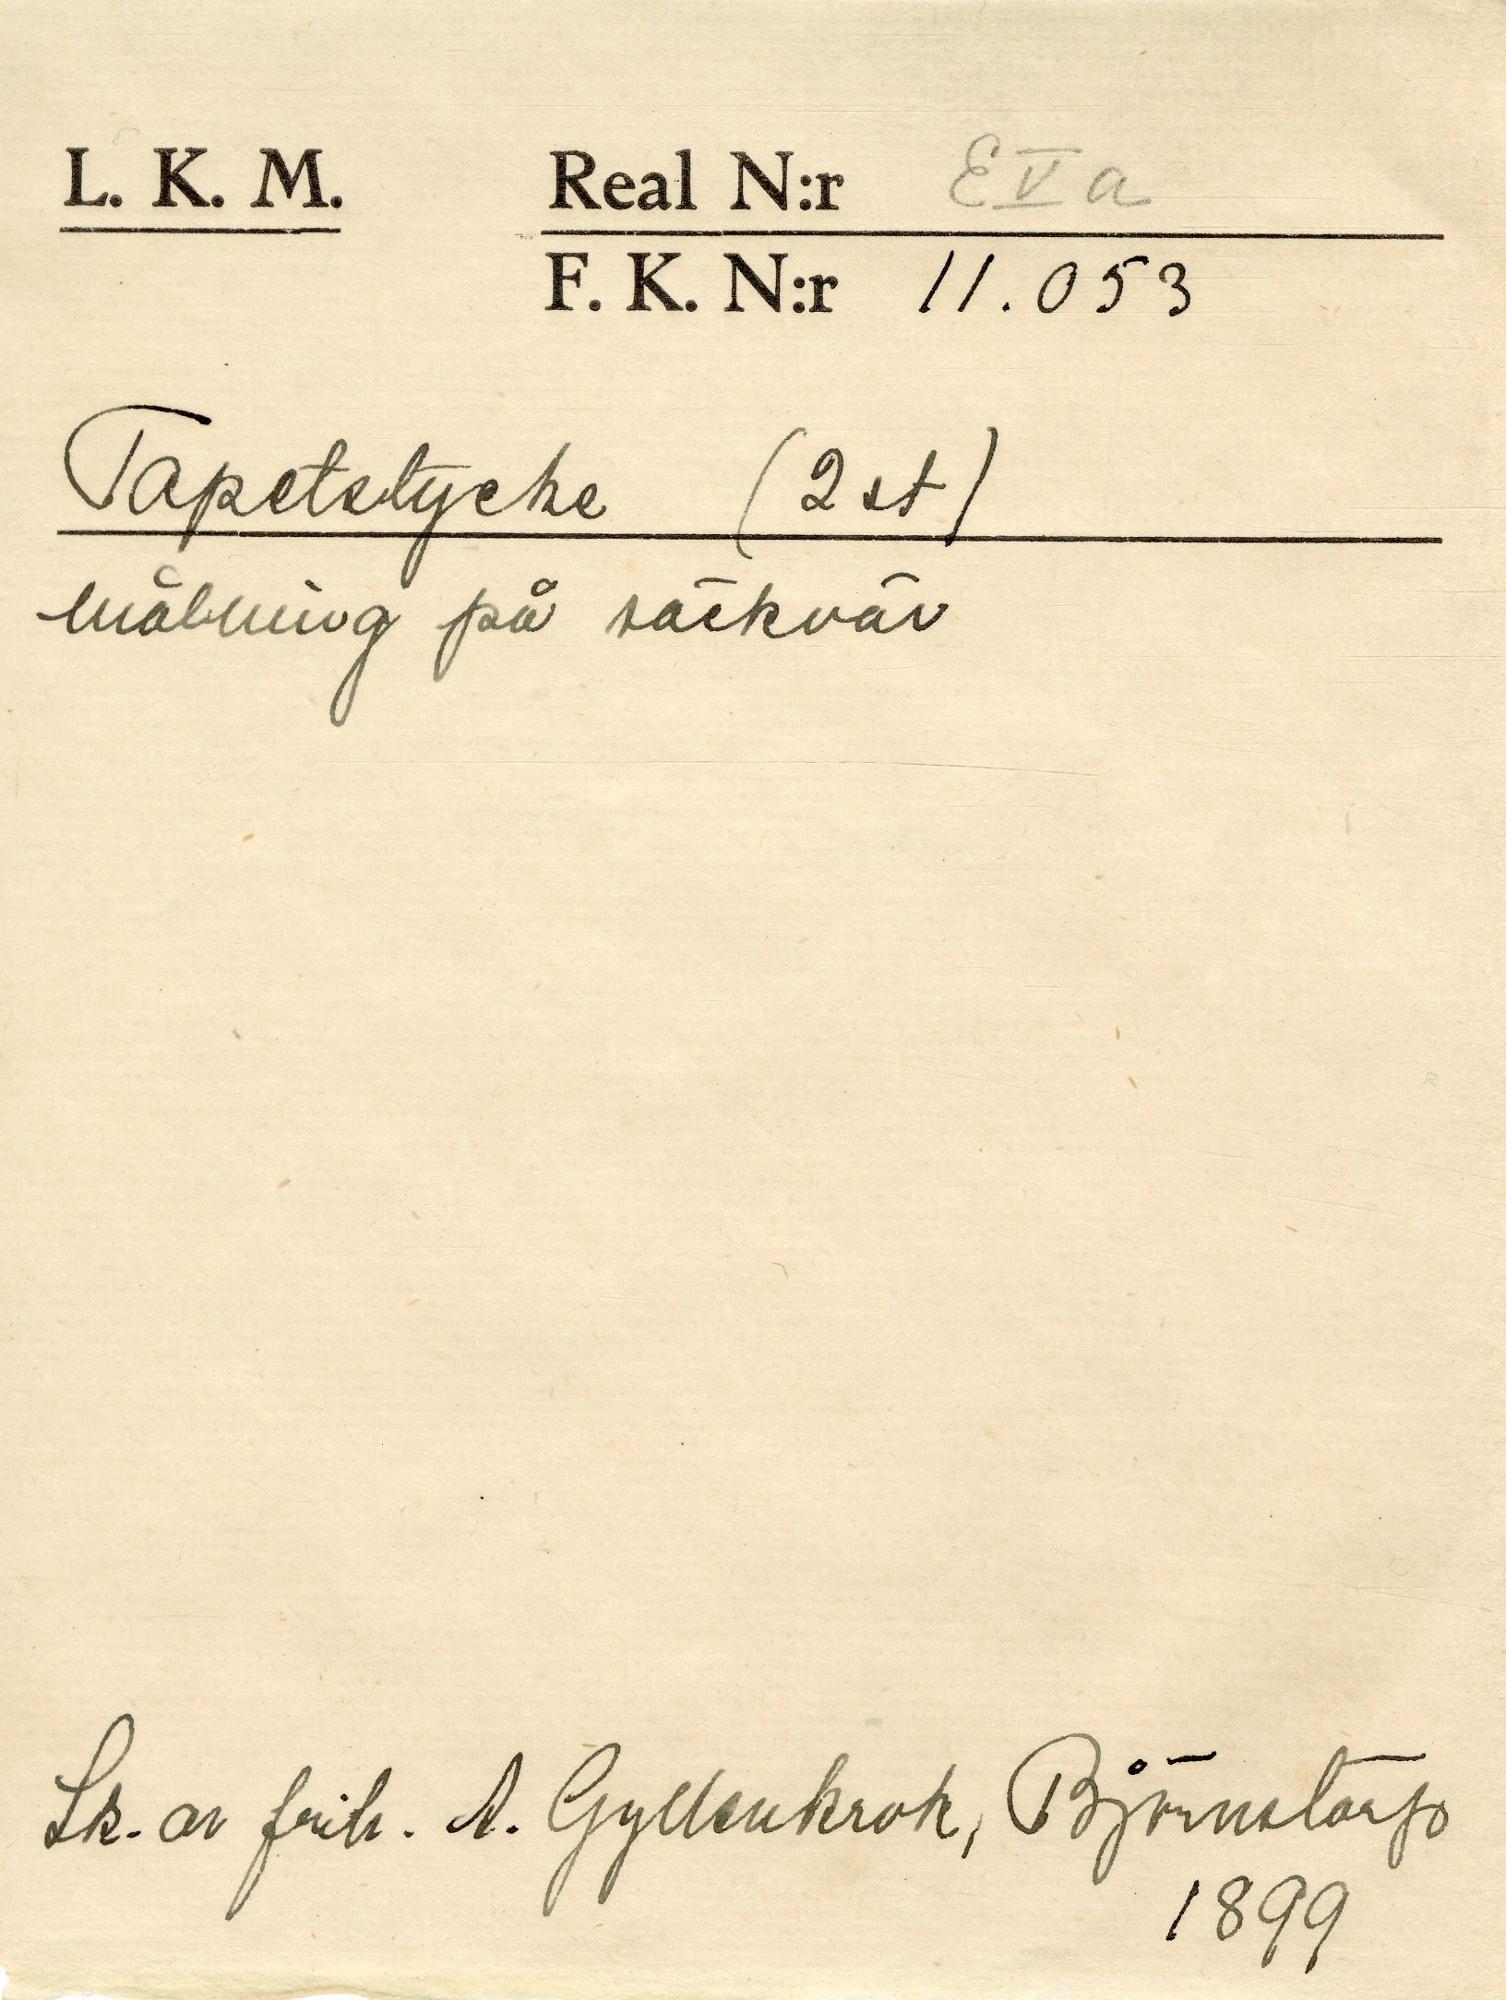 L. K. M. Real N:r E V a
F. K. N:r 11.053
Tapetstycke (2 st)
målning på säckväv
Sk. av frih. A. Gyllenkrok, Björnstorp
1899